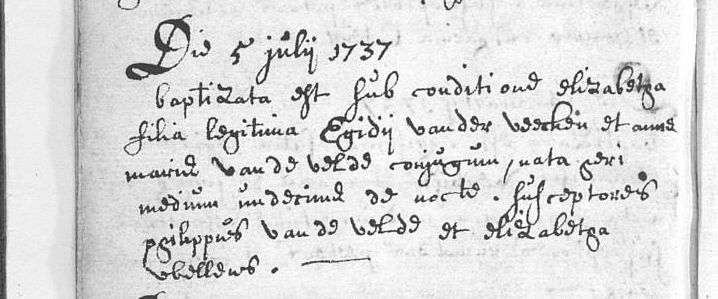 Die 5 julij 1737
baptizata est sub conditione elizabetha
filia legitima Egidij vander veecken et annæ
mariæ van de velde conjugum, nata heri
medium undecimæ de nocte. susceptores
philippus van de velde et elizabetha